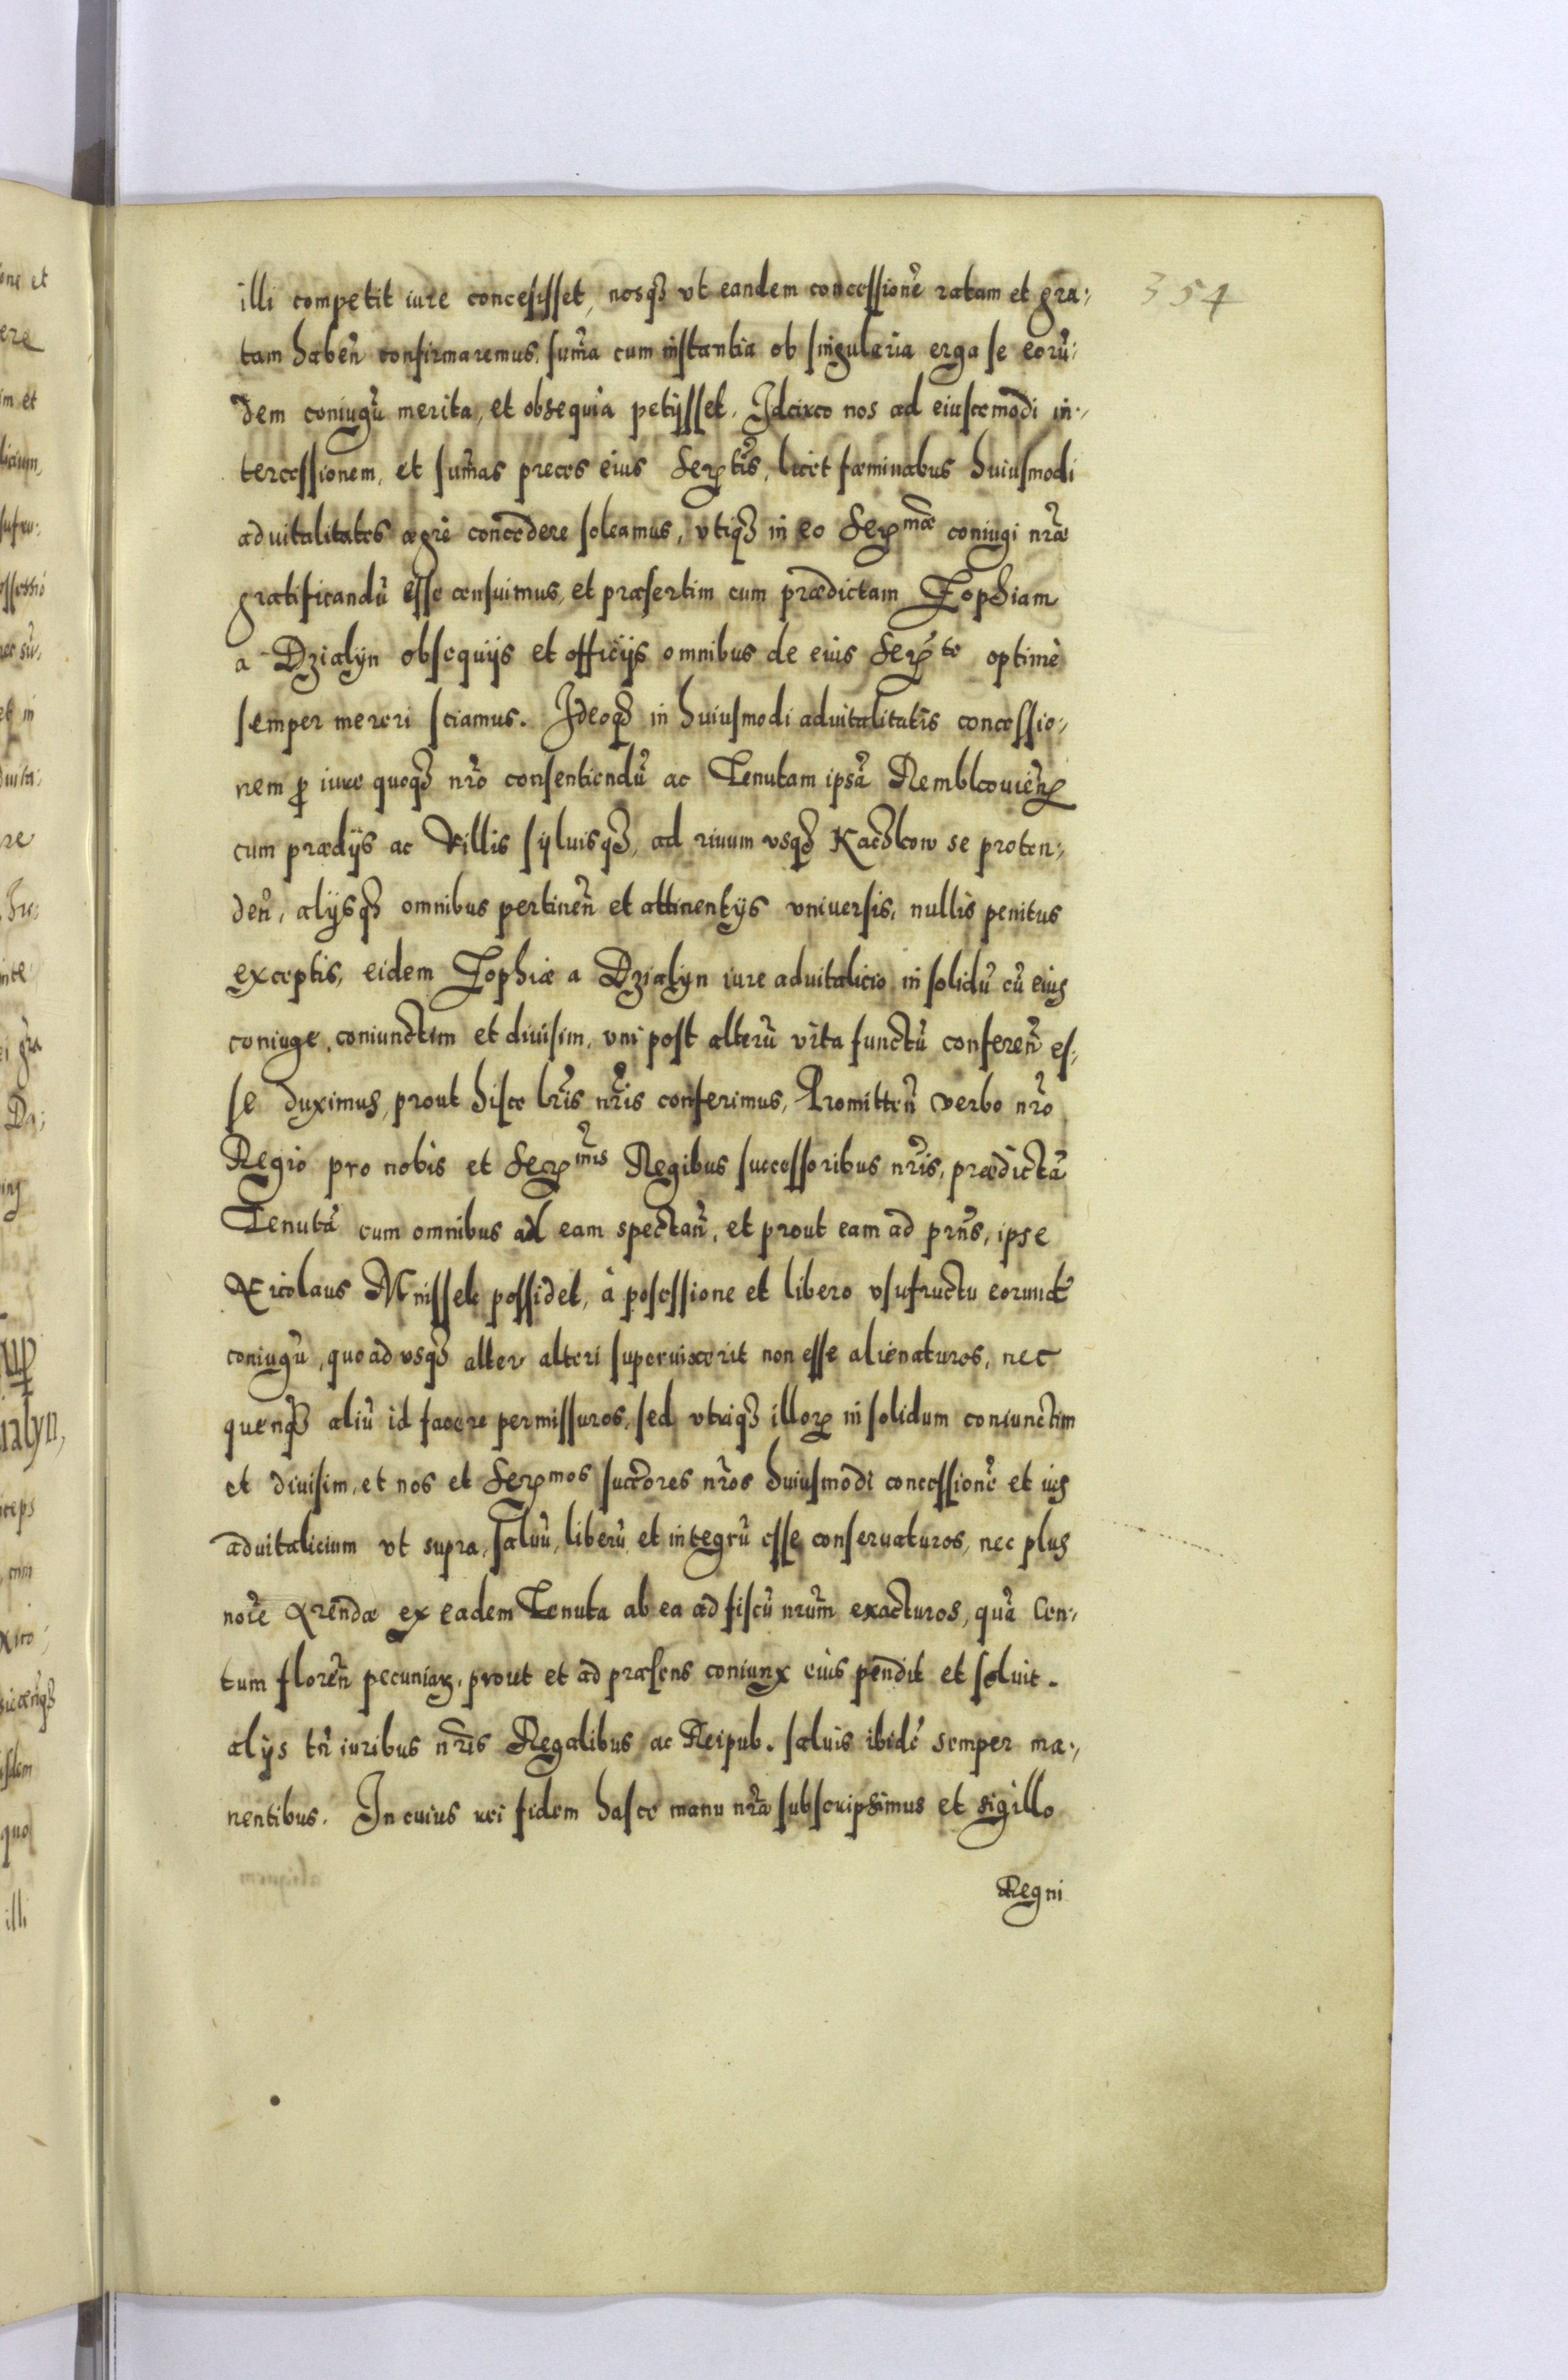 illi competit iure concesisset, nosq₃ vt eandem concessionē ratam et gra:
tam habeñ confirmaremus, sum̃a cum instantia ob singularia erga se eorũ:
dem coniugũ merita, et obsequia petijsset. Idcirco nos ad eiuscemodi in:
tercessionem, et sum̃as preces eius Serꝫtĩs, licet fœminabus huiusmodi
aduitalitates ægrè concedere soleamus, vtiq₃ in eo Serꝫmæ coniugi nr̃æ
gratificandũ esse censuimus, et præsertim cum prædictam Zophiam
a Dzialyn obsequijs et officijs omnibus de eius Serꝫte optimè
semper mereri sciamus. Ideoq₃ in huiusmodi aduitalitatis concessio:
nem ꝓ iure quoq₃ nr̃o consentiendũ ac Tenutam ipsã Remblcouieñꝫ
cum prædijs ac villis syluisq₃, ad riuum vsq₃ Kachlow se proten:
deñ, alijsq₃ omnibus pertineñ et attinentijs vniuersis, nullis penitus
exceptis, eidem Zophiæ a Dzialyn iure aduitalicio in solidũ cũ eius
coniuge, coniunctim et diuisim, vni post alterũ vita functũ confereñ es:
se duximus, prout hisce lr̃is nr̃is conferimus, Promitteñ verbo nr̃o
Regio pro nobis et Serꝫmis Regibus successoribus nr̃is, prædictã
Tenutã cum omnibus ad eam spectañ, et prout eam ad prñs, ipse
Nicolaus Mnissek possidet, à posessione et libero vsufructu eorundẽ
coniugũ, quoad vsq₃ alter alteri superuixerit non esse alienaturos, nec
quenq₃ aliũ id facere permissuros, sed vtriq₃ illorꝫ in solidum coniunctim
et diuisim, et nos et Serꝫmos succ̃ores nr̃os huiusmodi concessionẽ et ius
aduitalicium vt supra, saluũ, liberũ et integrũ esse conseruaturos, nec plus
noĩe Arendæ ex eadem Tenuta ab ea ad fiscũ nrũm exacturos, quã Cen:
tum floreñ pecuniaꝝ, prout et ad præsens coniunx eius pendit et soluit.
alijs tñ iuribus nr̃is Regalibus ac Reipub. saluis ibidẽ semper ma:
nentibus. In cuius rei fidem hasce manu nr̃a subscripsimus et sigillo
Regni
354